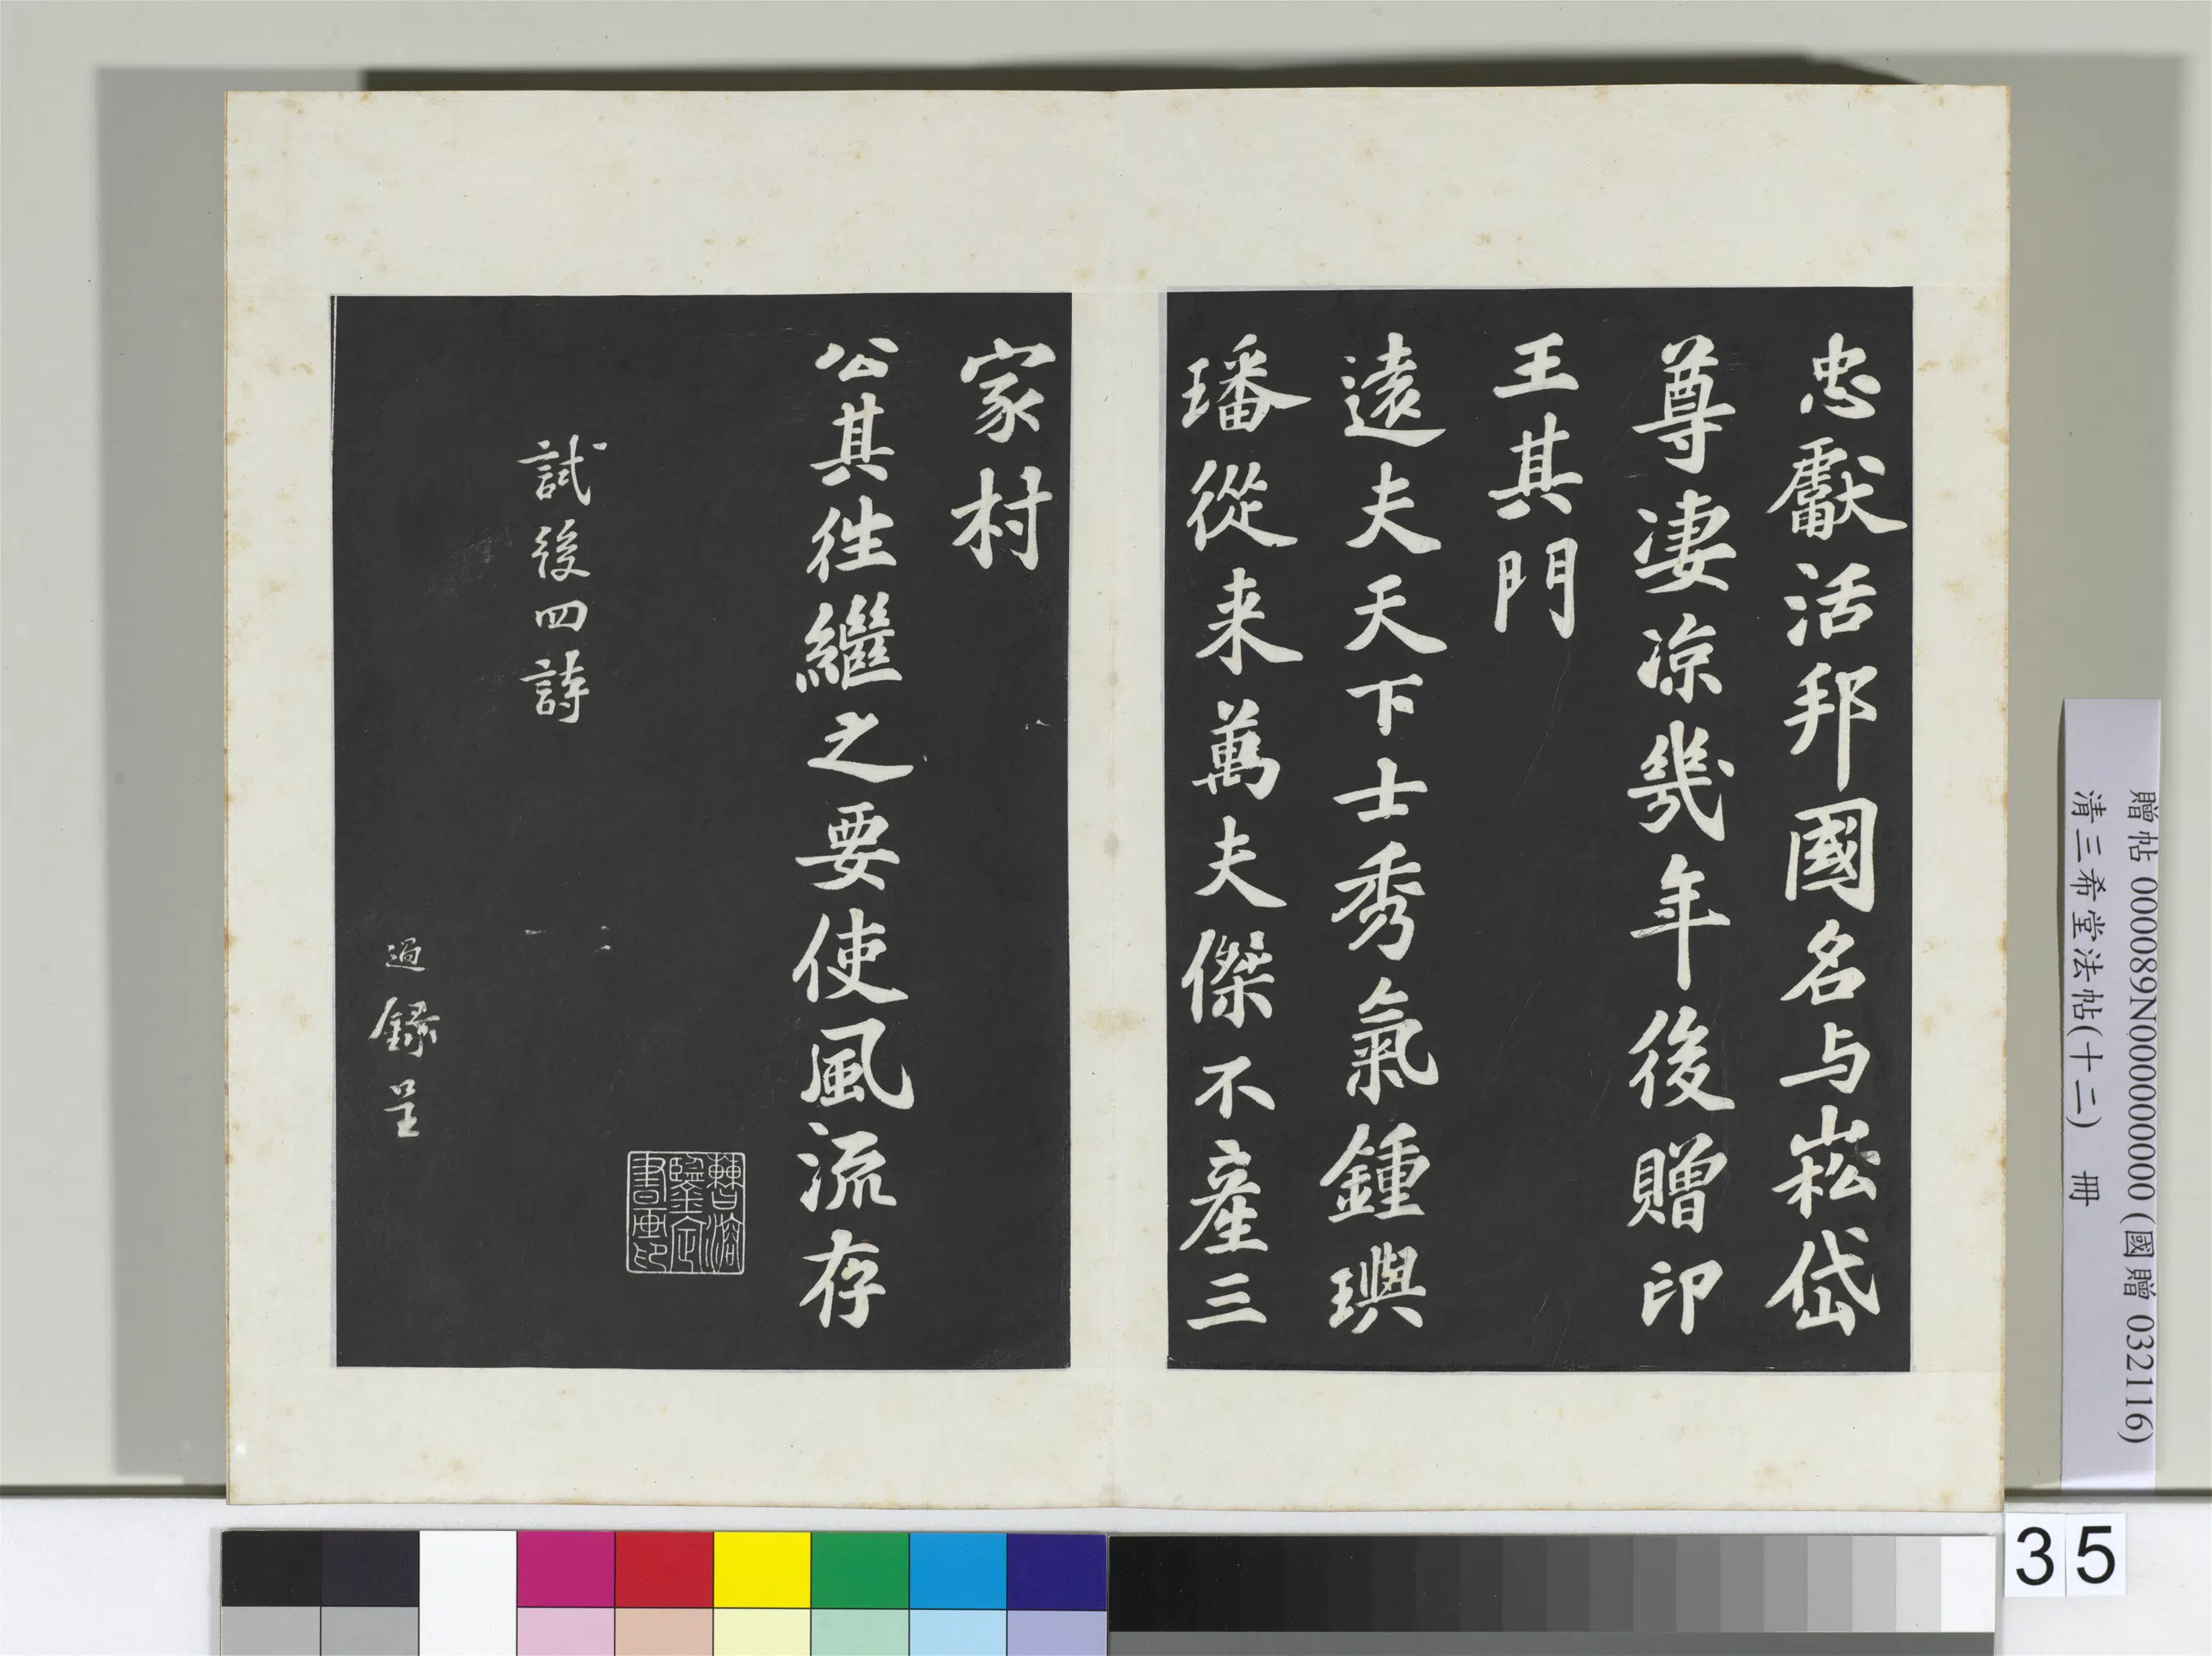 忠獻活邦國名与崧岱
尊凄凉幾年後贈印
王其門
遠夫天下士秀氣鍾璵
璠從来萬夫傑不產三
家村
公其徃繼之要使風流存
曹溶
鑒定
書畫印
試後四詩
過録呈
贈帖 000089N000000000 (國贈 032116)
清三希堂法帖(十二) 冊
35